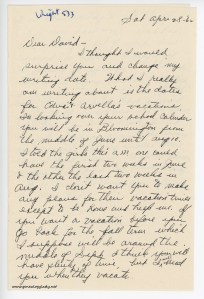 Wright 573
Sat Apr 28-62
Dear David -
I thought I would
surprise you and change my
writing date. What I really
am writing about is the dates
for and Arvella's vacations.
In looking over your school Calender
you will be in Bloomington from
the middle of June until Aug.
I told the girls that one could
have the first two weeks in June
& the other the last two weeks in
Aug. I don't want you to make
any plans for their vacation times
except to be home and help me if
you want a vacation before you
go back for the fall term which
I suppose will be around the
middle of Sept. I think you will
have plenty of time. Just
you when they vacate.
www.growingbody.net